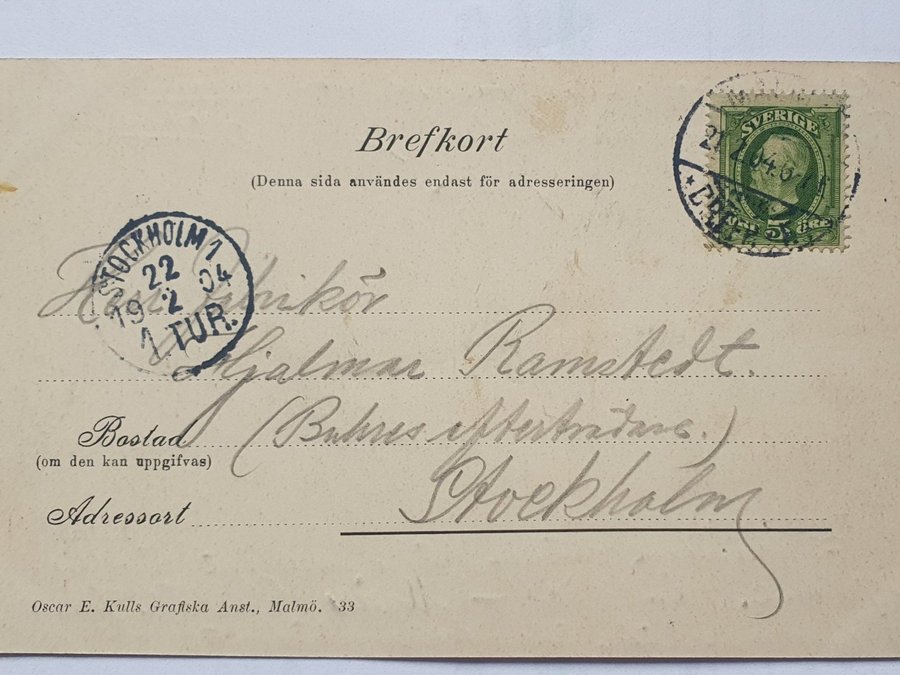 Brefkort
(Denna sida användes endast för adresseringen)
SVERIGE
21.2.04.
5 ÖRE
STOCKHOLM 1
22
19 2 04
1. TUR.
Herr
Hjalmar Ramstedt.
(Buhres efterträdare.)
Bostad
(om den kan uppgifvas)
Stockholm
Adressort
Oscar E. Kulls Grafiska Anst., Malmö. 33